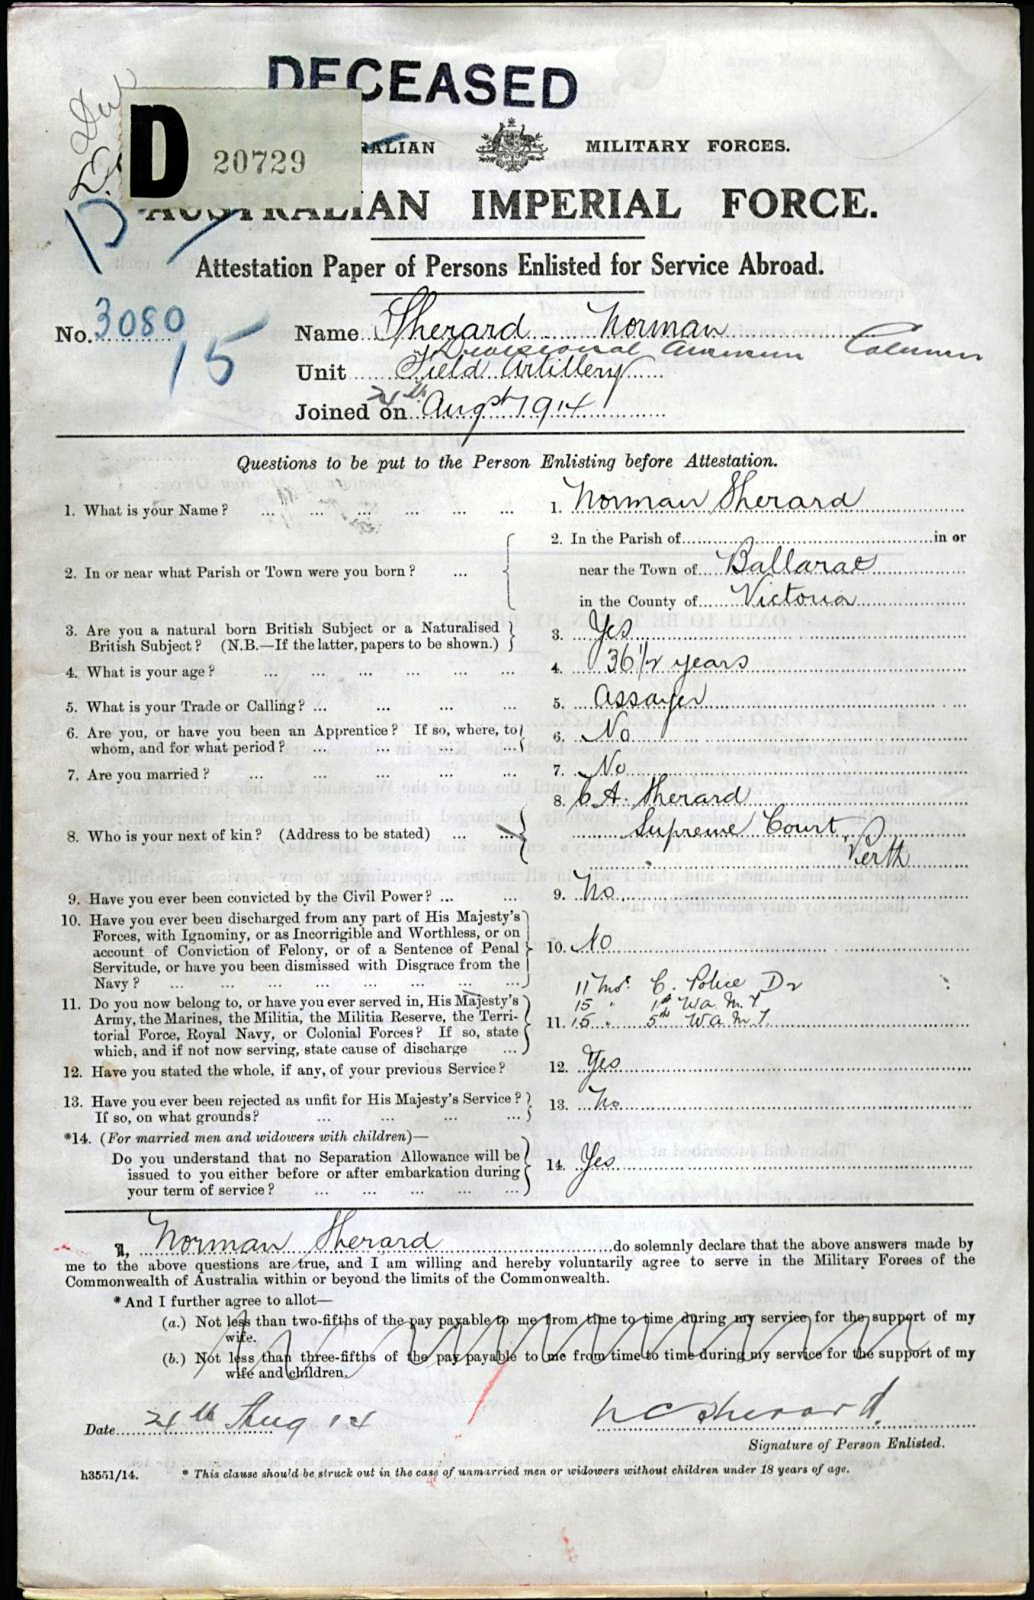 DECEASED
D 20729
RALIAN MILITARY FORCES.
AUSTRALIAN IMPERIAL FORCE.
Attestation Paper of Persons Enlisted for Service Abroad.
No. 3080
15
Name Sherard Norman
Divisional Ammun Column
Unit Field Artillery
Joined on 24th Augst 1914
Questions to be put to the Person Enlisting before Attestation.
1. What is your Name? ... 1. Norman Sherard
2. In or near what Parish or Town were you born? ... 2. In the Parish of in or
near the Town of Ballarat
in the County of Victoria
3. Are you a natural born British Subject or a Naturalised
British Subject? (N.B.—If the latter, papers to be shown.) 3. Yes
4. What is your age? ... 4. 36 1/2 years
5. What is your Trade or Calling? ... 5. Assayer
6. Are you, or have you been an Apprentice? If so, where, to
whom, and for what period? ... 6. No
7. Are you married? ... 7. No
8. Who is your next of kin? (Address to be stated) ... 8. C A. Sherard
Supreme Court
Perth
9. Have you ever been convicted by the Civil Power? ... 9. No
10. Have you ever been discharged from any part of His Majesty's
Forces, with Ignominy, or as Incorrigible and Worthless, or on
account of Conviction of Felony, or of a Sentence of Penal
Servitude, or have you been dismissed with Disgrace from the
Navy? ... 10. No
11. Do you now belong to, or have you ever served in, His Majesty's
Army, the Marines, the Militia, the Militia Reserve, the Terri-
torial Force, Royal Navy, or Colonial Forces? If so, state
which, and if not now serving, state cause of discharge ...
11 Mos. C. Police Dr
15 " 1st W A. M. I
11. 15 " 5th W A M I.
12. Have you stated the whole, if any, of your previous Service? 12. Yes
13. Have you ever been rejected as unfit for His Majesty's Service?
If so, on what grounds? ... 13. No
*14. (For married men and widowers with children)—
Do you understand that no Separation Allowance will be
issued to you either before or after embarkation during
your term of service? ... 14. Yes
I, Norman Sherard do solemnly declare that the above answers made by
me to the above questions are true, and I am willing and hereby voluntarily agree to serve in the Military Forces of the
Commonwealth of Australia within or beyond the limits of the Commonwealth.
* And I further agree to allot—
(a.) Not less than two-fifths of the pay payable to me from time to time during my service for the support of my
wife.
(b.) Not less than three-fifths of the pay payable to me from time to time during my service for the support of my
wife and children.
Date 24th Aug 14
N C Sherard.
Signature of Person Enlisted.
h3551/14. * This clause should be struck out in the case of unmarried men or widowers without children under 18 years of age.